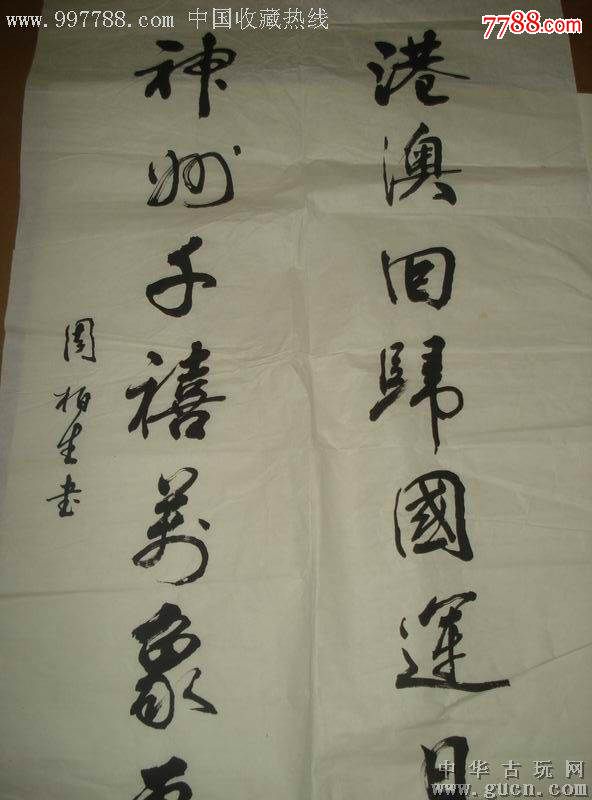 www.997788.com 中国收藏热线
7788.com
港澳回歸國運日
神州千禧萬象
周柏生书
中华古玩网
www.gucn.com